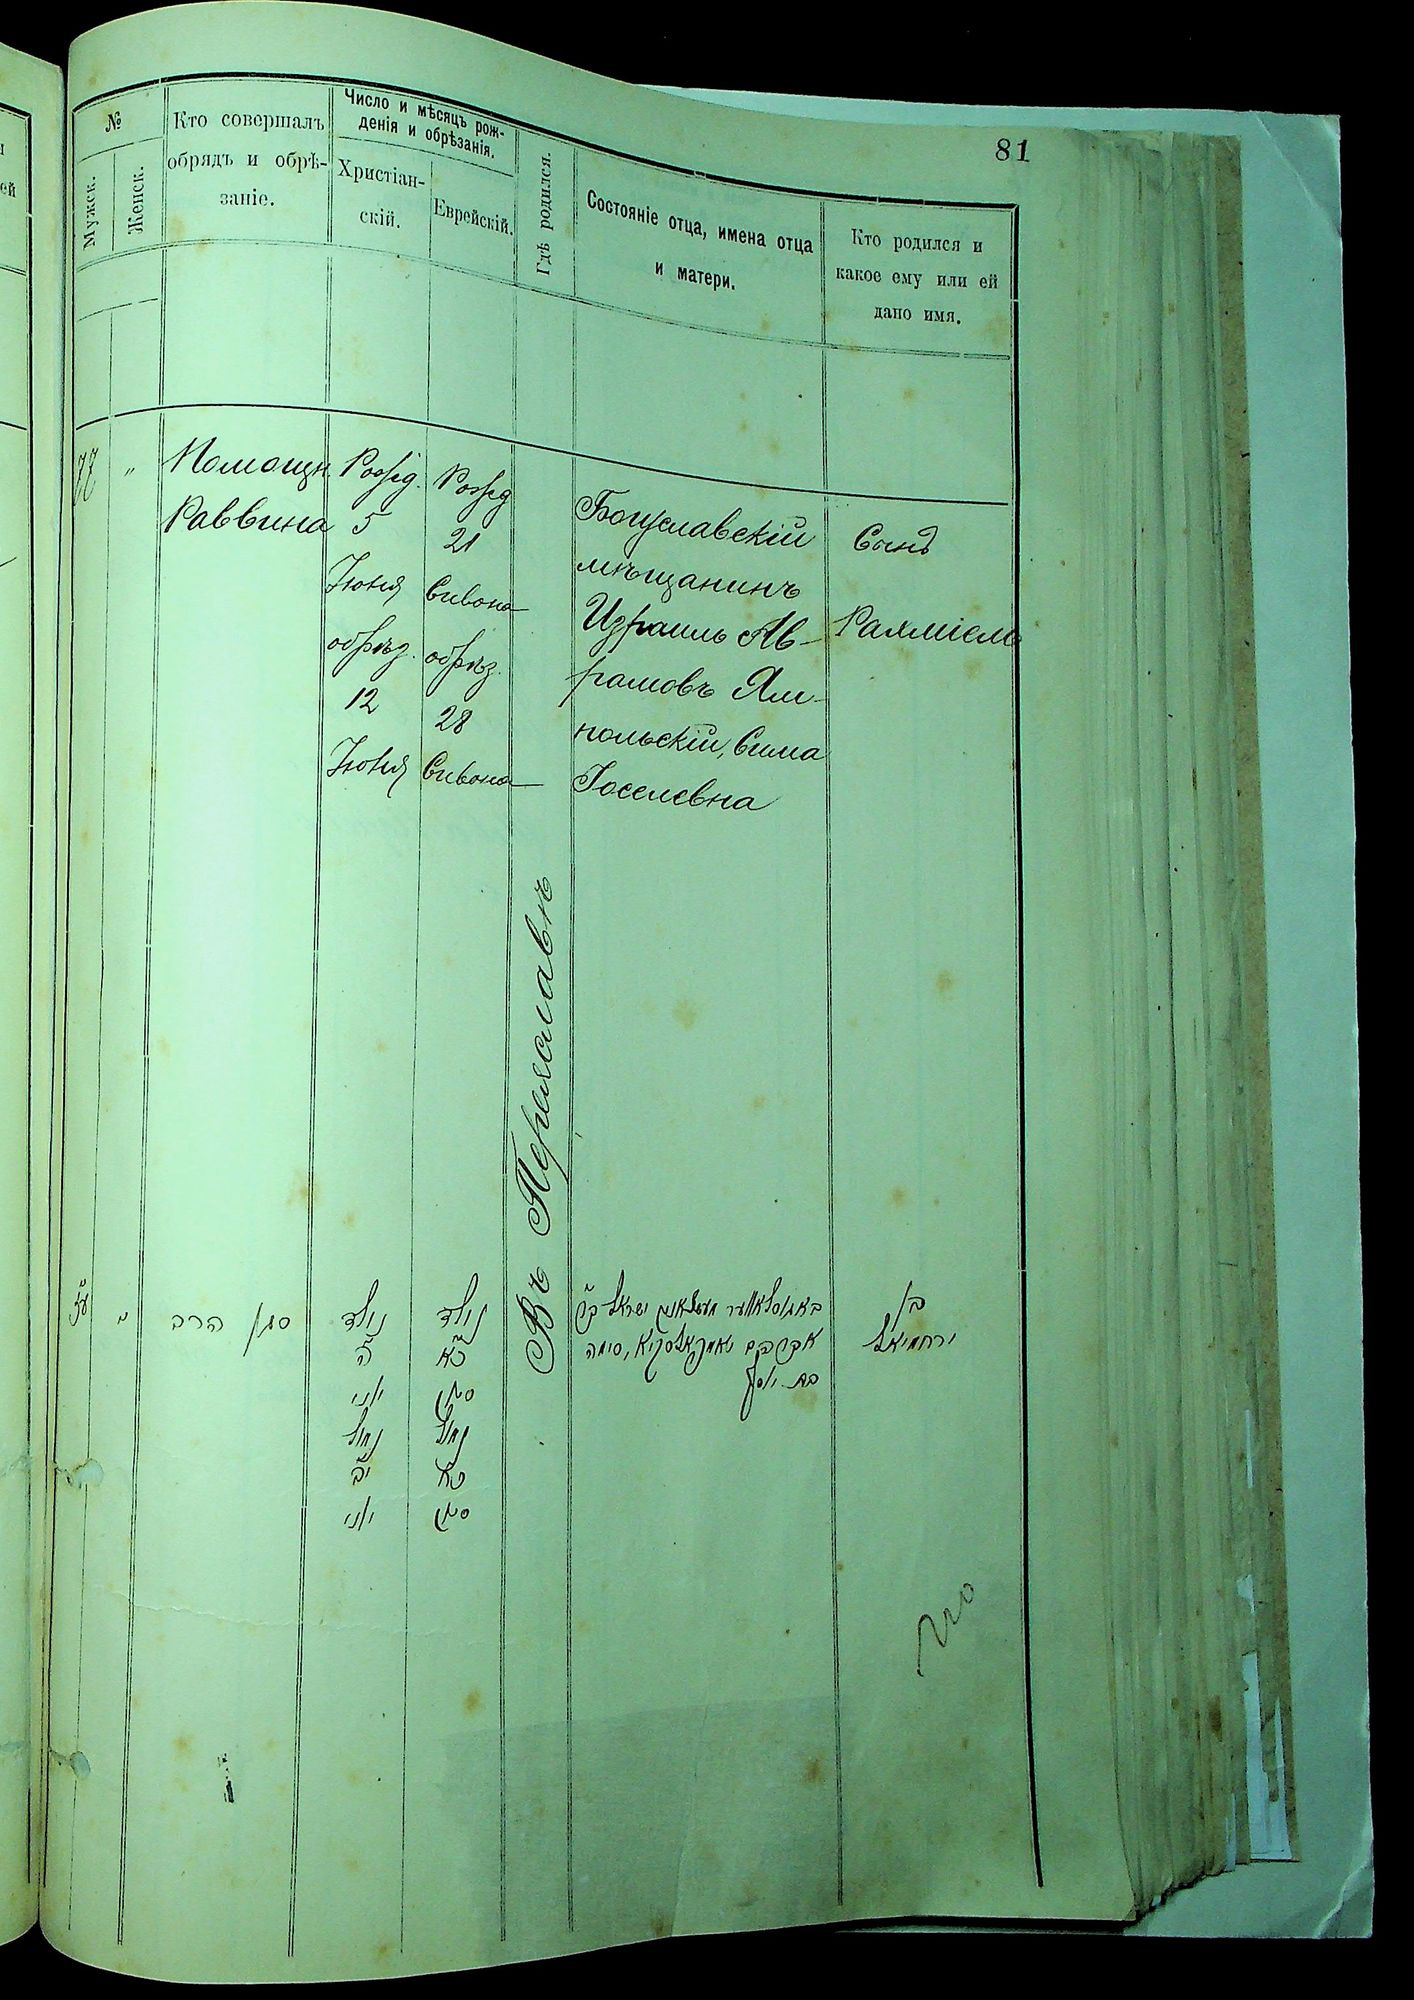 81
№
Мужск.
Женск.
Кто совершалъ
обрядъ и обрѣ-
заніе.
Число и мѣсяцъ рож-
денія и обрѣзанія.
Христіан-
скій.
Еврейскій.
Гдѣ родился.
Состояніе отца, имена отца
и матери.
Кто родился и
какое ему или ей
дано имя.
77
"
Помощн.
Раввина
Рожд.
5
Іюня
обрѣз.
12
Іюня
Рожд
21
Сивона
обрѣз.
28
Сивона
Въ Переяславѣ
Богуславскій
мѣщанинъ
Израиль Ав-
рамовъ Ям-
польскій, Сима
Іоселевна
Сынъ
Рахміель
ע״ז
סגן הרב
נולד
ה׳
יוני
נמול
י״ב
יוני
נולד
כ״א
סיון
נמול
כ״ח
סיון
בת יוסף
בן
ירחמיאל